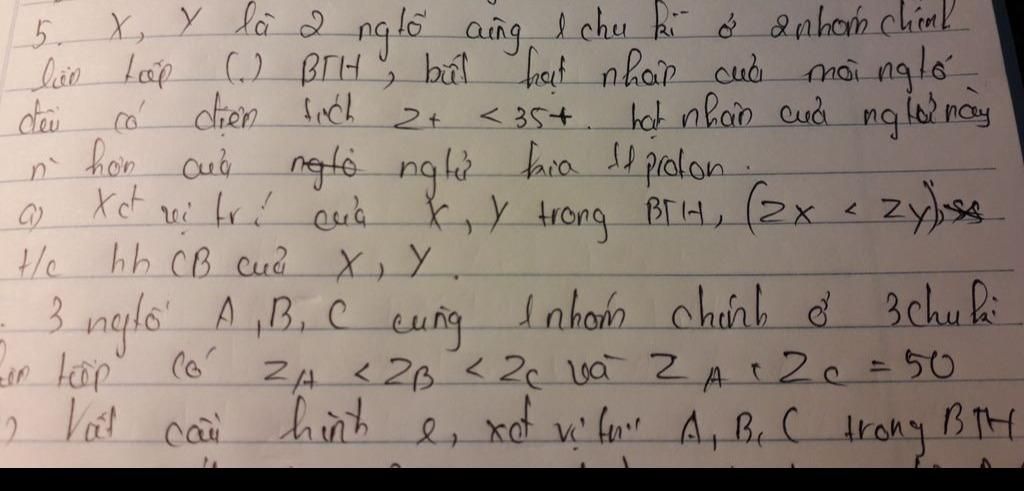 5. X, Y là 2 ngtố cùng 1 chu kì ở 2 nhóm chính
liên tiếp (.) BTH, biết hạt nhân của mỗi ngtố
đều có điện tích Z+ < 35+. hạt nhân của ngtử này
n` hơn của ngtử kia 11 proton.
a) Xđ vị trí của X, Y trong BTH, (ZX < ZY),
t/c hh CB của X, Y.
3 ngtố A, B, C cùng 1 nhóm chính ở 3 chu kì
tiếp có ZA < ZB < ZC và ZA + ZC = 50
) Viết cấu hình e, xđ vị trí A, B, C trong BTH